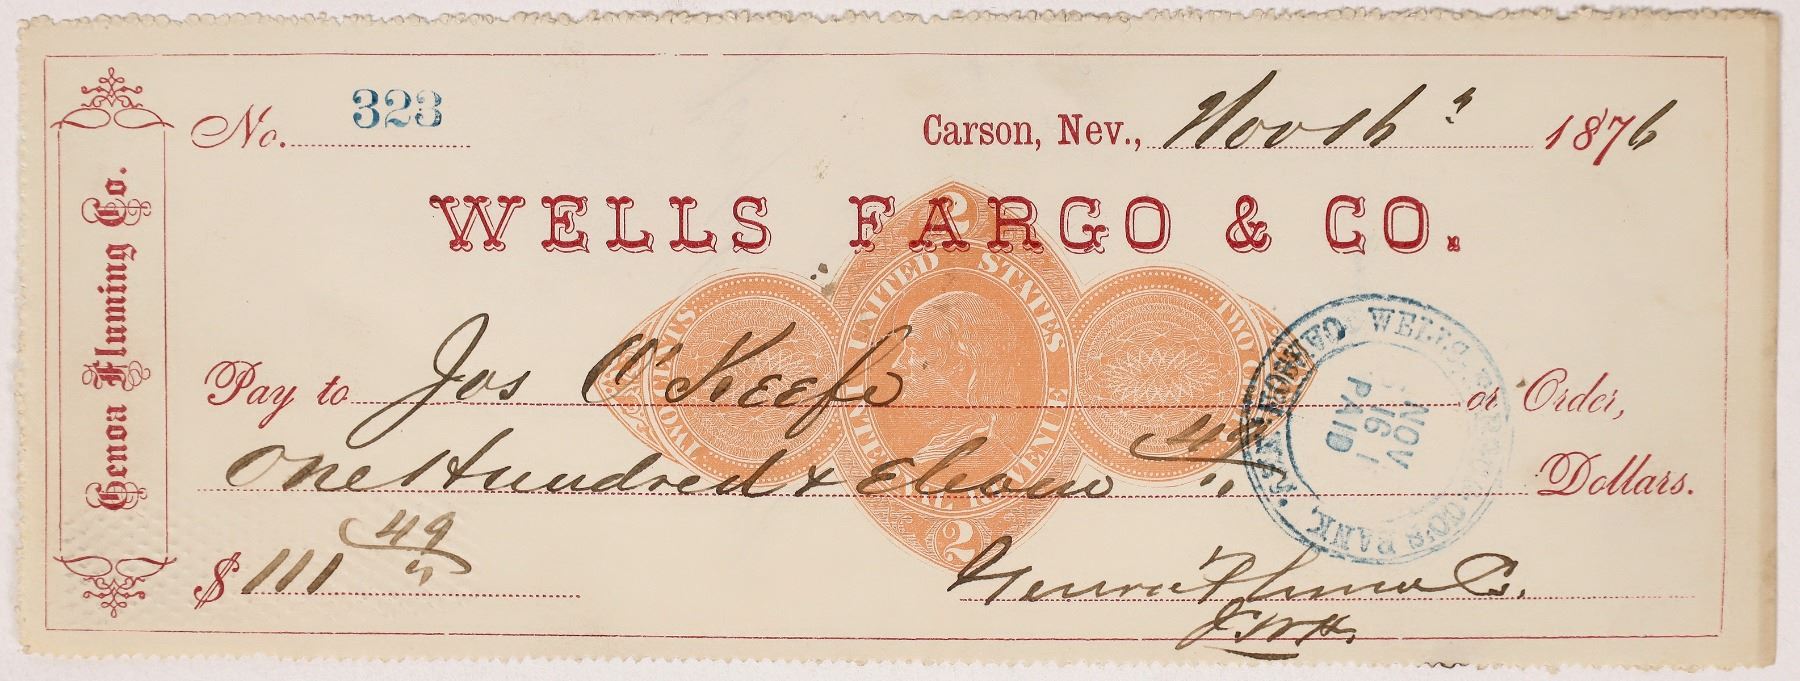 Genoa Fluming Co.
No. 323
Carson, Nev., Nov 16th 1876
WELLS FARGO & CO.
2
UNITED STATES
TWO CENTS
INTERNAL REVENUE
2
Pay to Jos O'Keefe or Order,
One Hundred & Eleven 49/" Dollars.
$ 111 49/"
WELLS, FARGO & CO'S BANK,
NOV
16
PAID
Genoa Flume Co.
J.W.H.